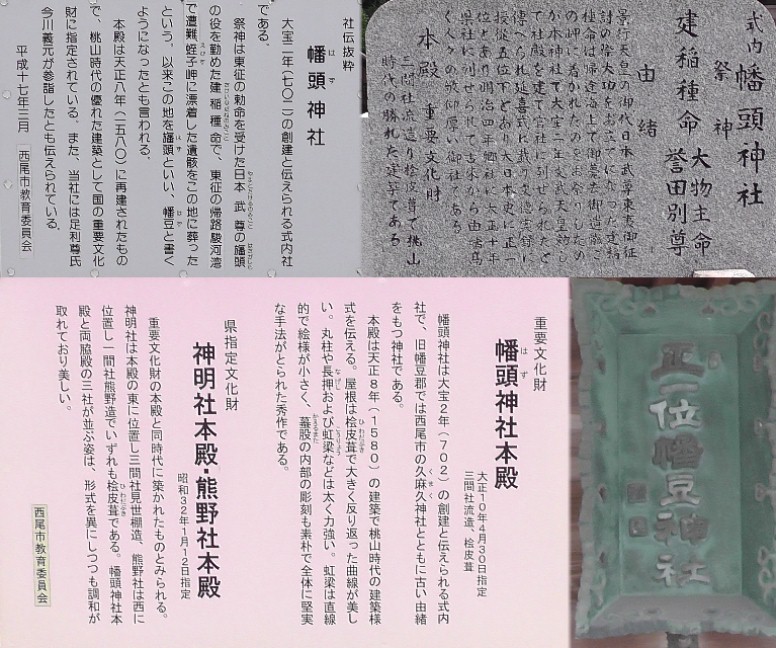 式内 幡頭神社
祭神
建稲種命 大物主命
誉田別尊
由緒
景行天皇の御代日本武尊東夷御征
討の際大功をお立てになった建稲
種命は帰途海上で御薨去御遺骸こ
の岬に着かれたのをお祭りしたの
が本神社で大宝二年文武天皇勅し
て社殿を建て
本殿 重要文化財
三間社流造り桧皮葺で桃山
時代の勝れた建築である
社伝抜粋
幡頭神社
はず
大宝二年（七〇二）の創建と伝えられる式内社
である。
祭神は東征の勅命を受けた日本武尊の旛頭
の役を勤めた建稲種命で、東征の帰路駿河湾
で遭難、蛭子岬に漂着した遺骸をこの地に葬った
という。以来この地を旛頭といい、幡豆と書く
ようになったとも言われる。
本殿は天正八年（一五八〇）に再建されたもの
で、桃山時代の優れた建築として国の重要文化
財に指定されている。また、当社には足利尊氏
今川義元が参詣したとも伝えられている。
平成十七年三月 西尾市教育委員会
正一位幡豆神社
重要文化財
幡頭神社本殿
はず
大正10年4月30日指定
三間社流造、桧皮葺
幡頭神社は大宝2年（702）の創建と伝えられる式内
社で、旧幡豆郡では西尾市の久麻久神社とともに古い由緒
をもつ神社である。
本殿は天正8年（1580）の建築で桃山時代の建築様
式を伝える。屋根は桧皮葺で大きく反り返った曲線が美し
い。丸柱や長押および虹梁などは太く力強い。虹梁は直線
的で絵様が小さく、蟇股の内部の彫刻も素朴で全体に堅実
な手法がとられた秀作である。
県指定文化財
神明社本殿・熊野社本殿
昭和32年1月12日指定
重要文化財の本殿と同時代に築かれたものとみられる。
神明社は本殿の東に位置し三間社見世棚造、熊野社は西に
位置し一間社熊野造でいずれも桧皮葺である。幡頭神社本
殿と両脇殿の三社が並ぶ姿は、形式を異にしつつも調和が
取れており美しい。
西尾市教育委員会